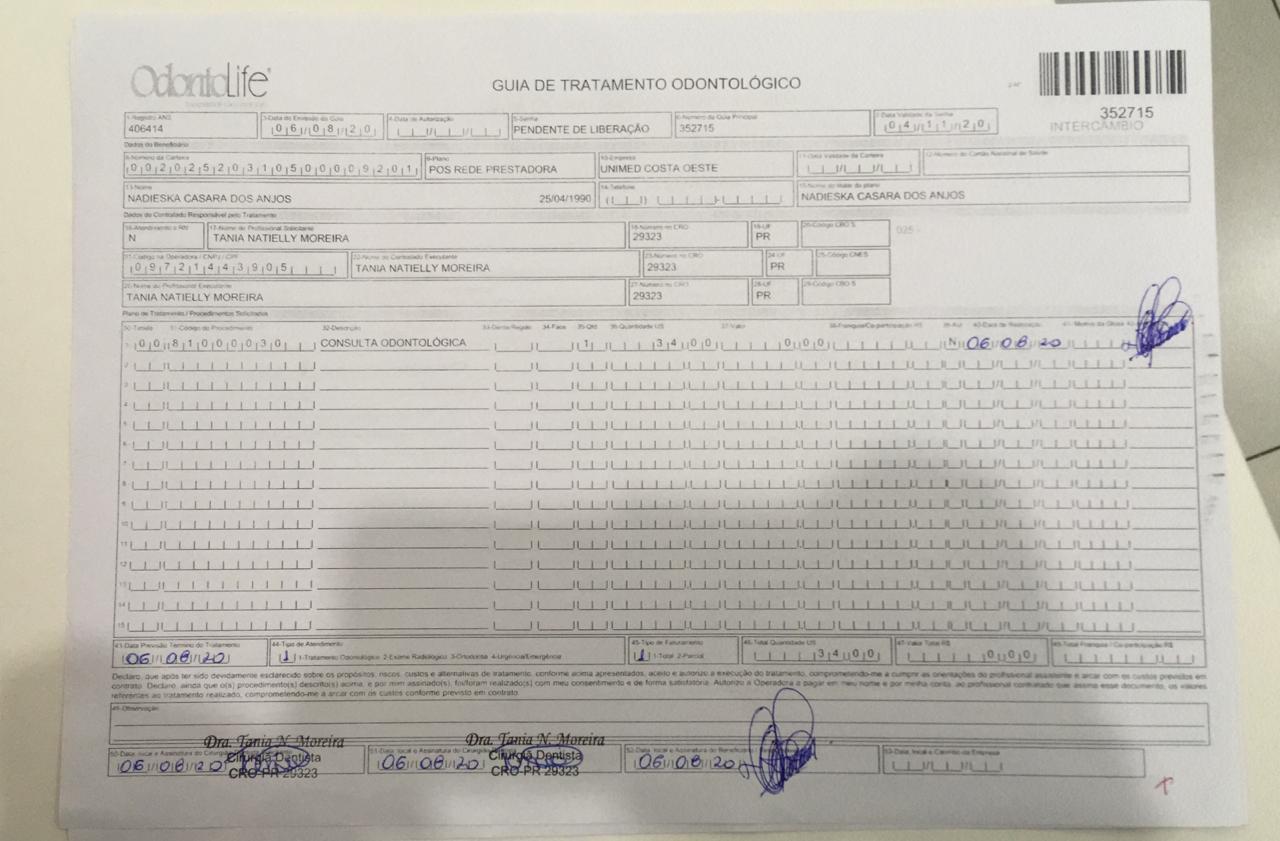 OdontoLife
GUIA DE TRATAMENTO ODONTOLÓGICO
352715
INTERCÂMBIO
1-Registro ANS 3-Data de Emissão da Guia 4-Data de Autorização 5-Senha 6-Número da Guia Principal 7-Data Validade da Senha
406414 06/08/20 PENDENTE DE LIBERAÇÃO 352715 04/11/20
Dados do Beneficiário
8-Número da Carteira 9-Plano 10-Empresa 11-Data Validade da Carteira 12-Número do Cartão Nacional de Saúde
00202520310500009201 POS REDE PRESTADORA UNIMED COSTA OESTE
13-Nome 14-Telefone 15-Nome do titular do plano
NADIESKA CASARA DOS ANJOS 25/04/1990 NADIESKA CASARA DOS ANJOS
Dados do Contratado Responsável pelo Tratamento
16-Atendimento a RN 17-Nome do Profissional Solicitante 18-Número no CRO 19-UF 20-Código CBO S
N TANIA NATIELLY MOREIRA 29323 PR 025 -
21-Código na Operadora / CNPJ / CPF 22-Nome do Contratado Executante 23-Número no CRO 24-UF 25-Código CNES
09721443905 TANIA NATIELLY MOREIRA 29323 PR
26-Nome do Profissional Executante 27-Número no CRO 28-UF 29-Código CBO S
TANIA NATIELLY MOREIRA 29323 PR
Plano de Tratamento / Procedimentos Solicitados
30-Tabela 31-Código do Procedimento 32-Descrição 33-Dente/Região 34-Face 35-Qtd 36-Quantidade US 37-Valor 38-Franquia/Co-participação R$ 39-Aut 40-Data de Realização 41-Motivo da Glosa
1 00 81000030 CONSULTA ODONTOLÓGICA 1 34 00 0 00 N 06/08/20
2
3
4
5
6
7
8
9
10
11
12
13
14
15
43-Data Previsão Término do Tratamento 44-Tipo de Atendimento 45-Tipo de Faturamento 46-Total Quantidade US 47-Valor Total R$ 48-Total Franquia / Co-participação R$
06/08/20 1 1-Tratamento Odontológico 2-Exame Radiológico 3-Ortodontia 4-Urgência/Emergência 1 1-Total 2-Parcial 34 00 0 00
Declaro, que após ter sido devidamente esclarecido sobre os propósitos, riscos, custos e alternativas de tratamento, conforme acima apresentados, aceito e autorizo a execução do tratamento, comprometendo-me a cumprir as orientações do profissional assistente e arcar com os custos previstos em
contrato. Declaro, ainda que o(s) procedimento(s) descrito(s) acima, e por mim assinado(s), foi/foram realizado(s) com meu consentimento e de forma satisfatória. Autorizo a Operadora a pagar em meu nome e por minha conta, ao profissional contratado que assina esse documento, os valores
referentes ao tratamento realizado, comprometendo-me a arcar com os custos conforme previsto em contrato.
49-Observação
Dra. Tania N. Moreira Dra. Tania N. Moreira
50-Data, local e Assinatura do Cirurgião 51-Data, local e Assinatura do Cirurgião 52-Data, local e Assinatura do Beneficiário 53-Data, local e Carimbo da Empresa
Cirurgiã Dentista Cirurgiã Dentista
06/08/20 06/08/20 06/08/20
CRO-PR 29323 CRO-PR 29323